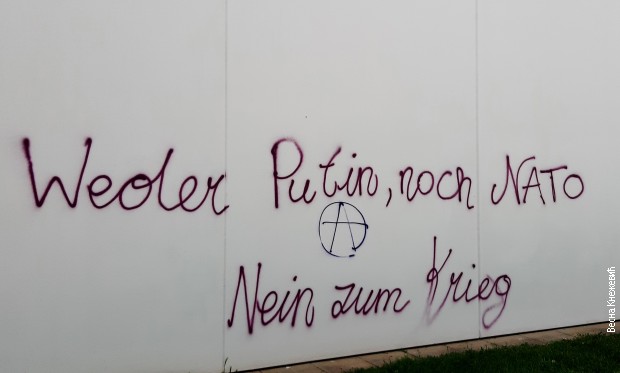 Weder Putin, noch NATO
A
Nein zum Krieg
Весна Кнежевић